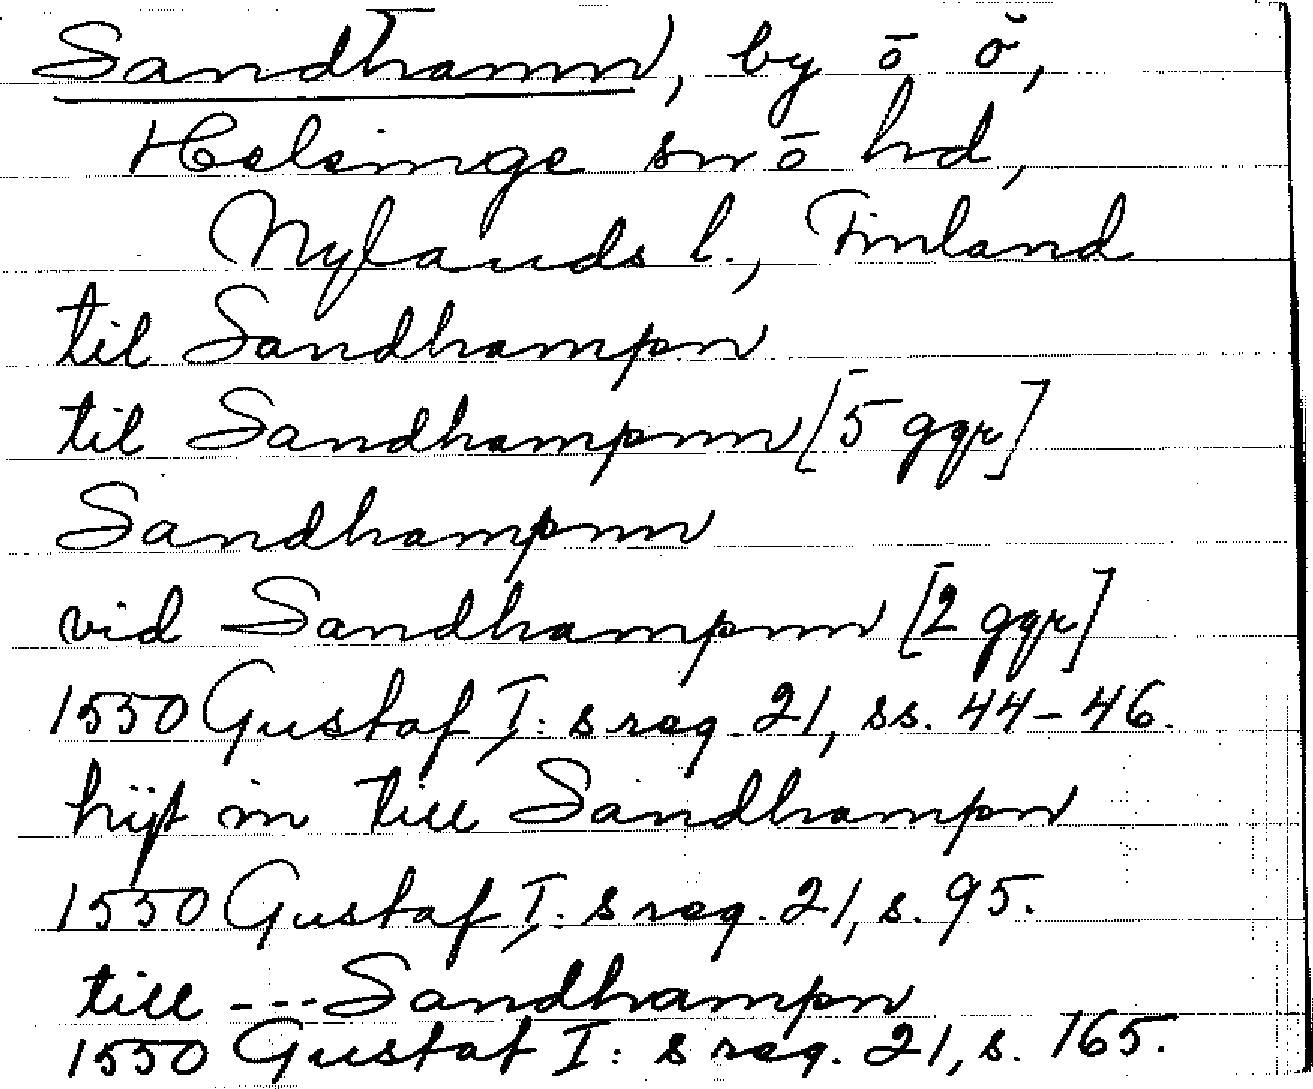 Sandhamn, by ō ŏ,
Helsinge sn ō hd,
Nylands l., Finland
til Sandhampn
til Sandhampnn [5 ggr]
Sandhampnn
vid Sandhampnn [2 ggr]
1550 Gustaf I: s reg. 21, ss. 44-46.
hijt in till Sandhampn
1550 Gustaf I: s reg. 21, s. 95.
till --- Sandhampn
1550 Gustaf I: s reg. 21, s. 165.